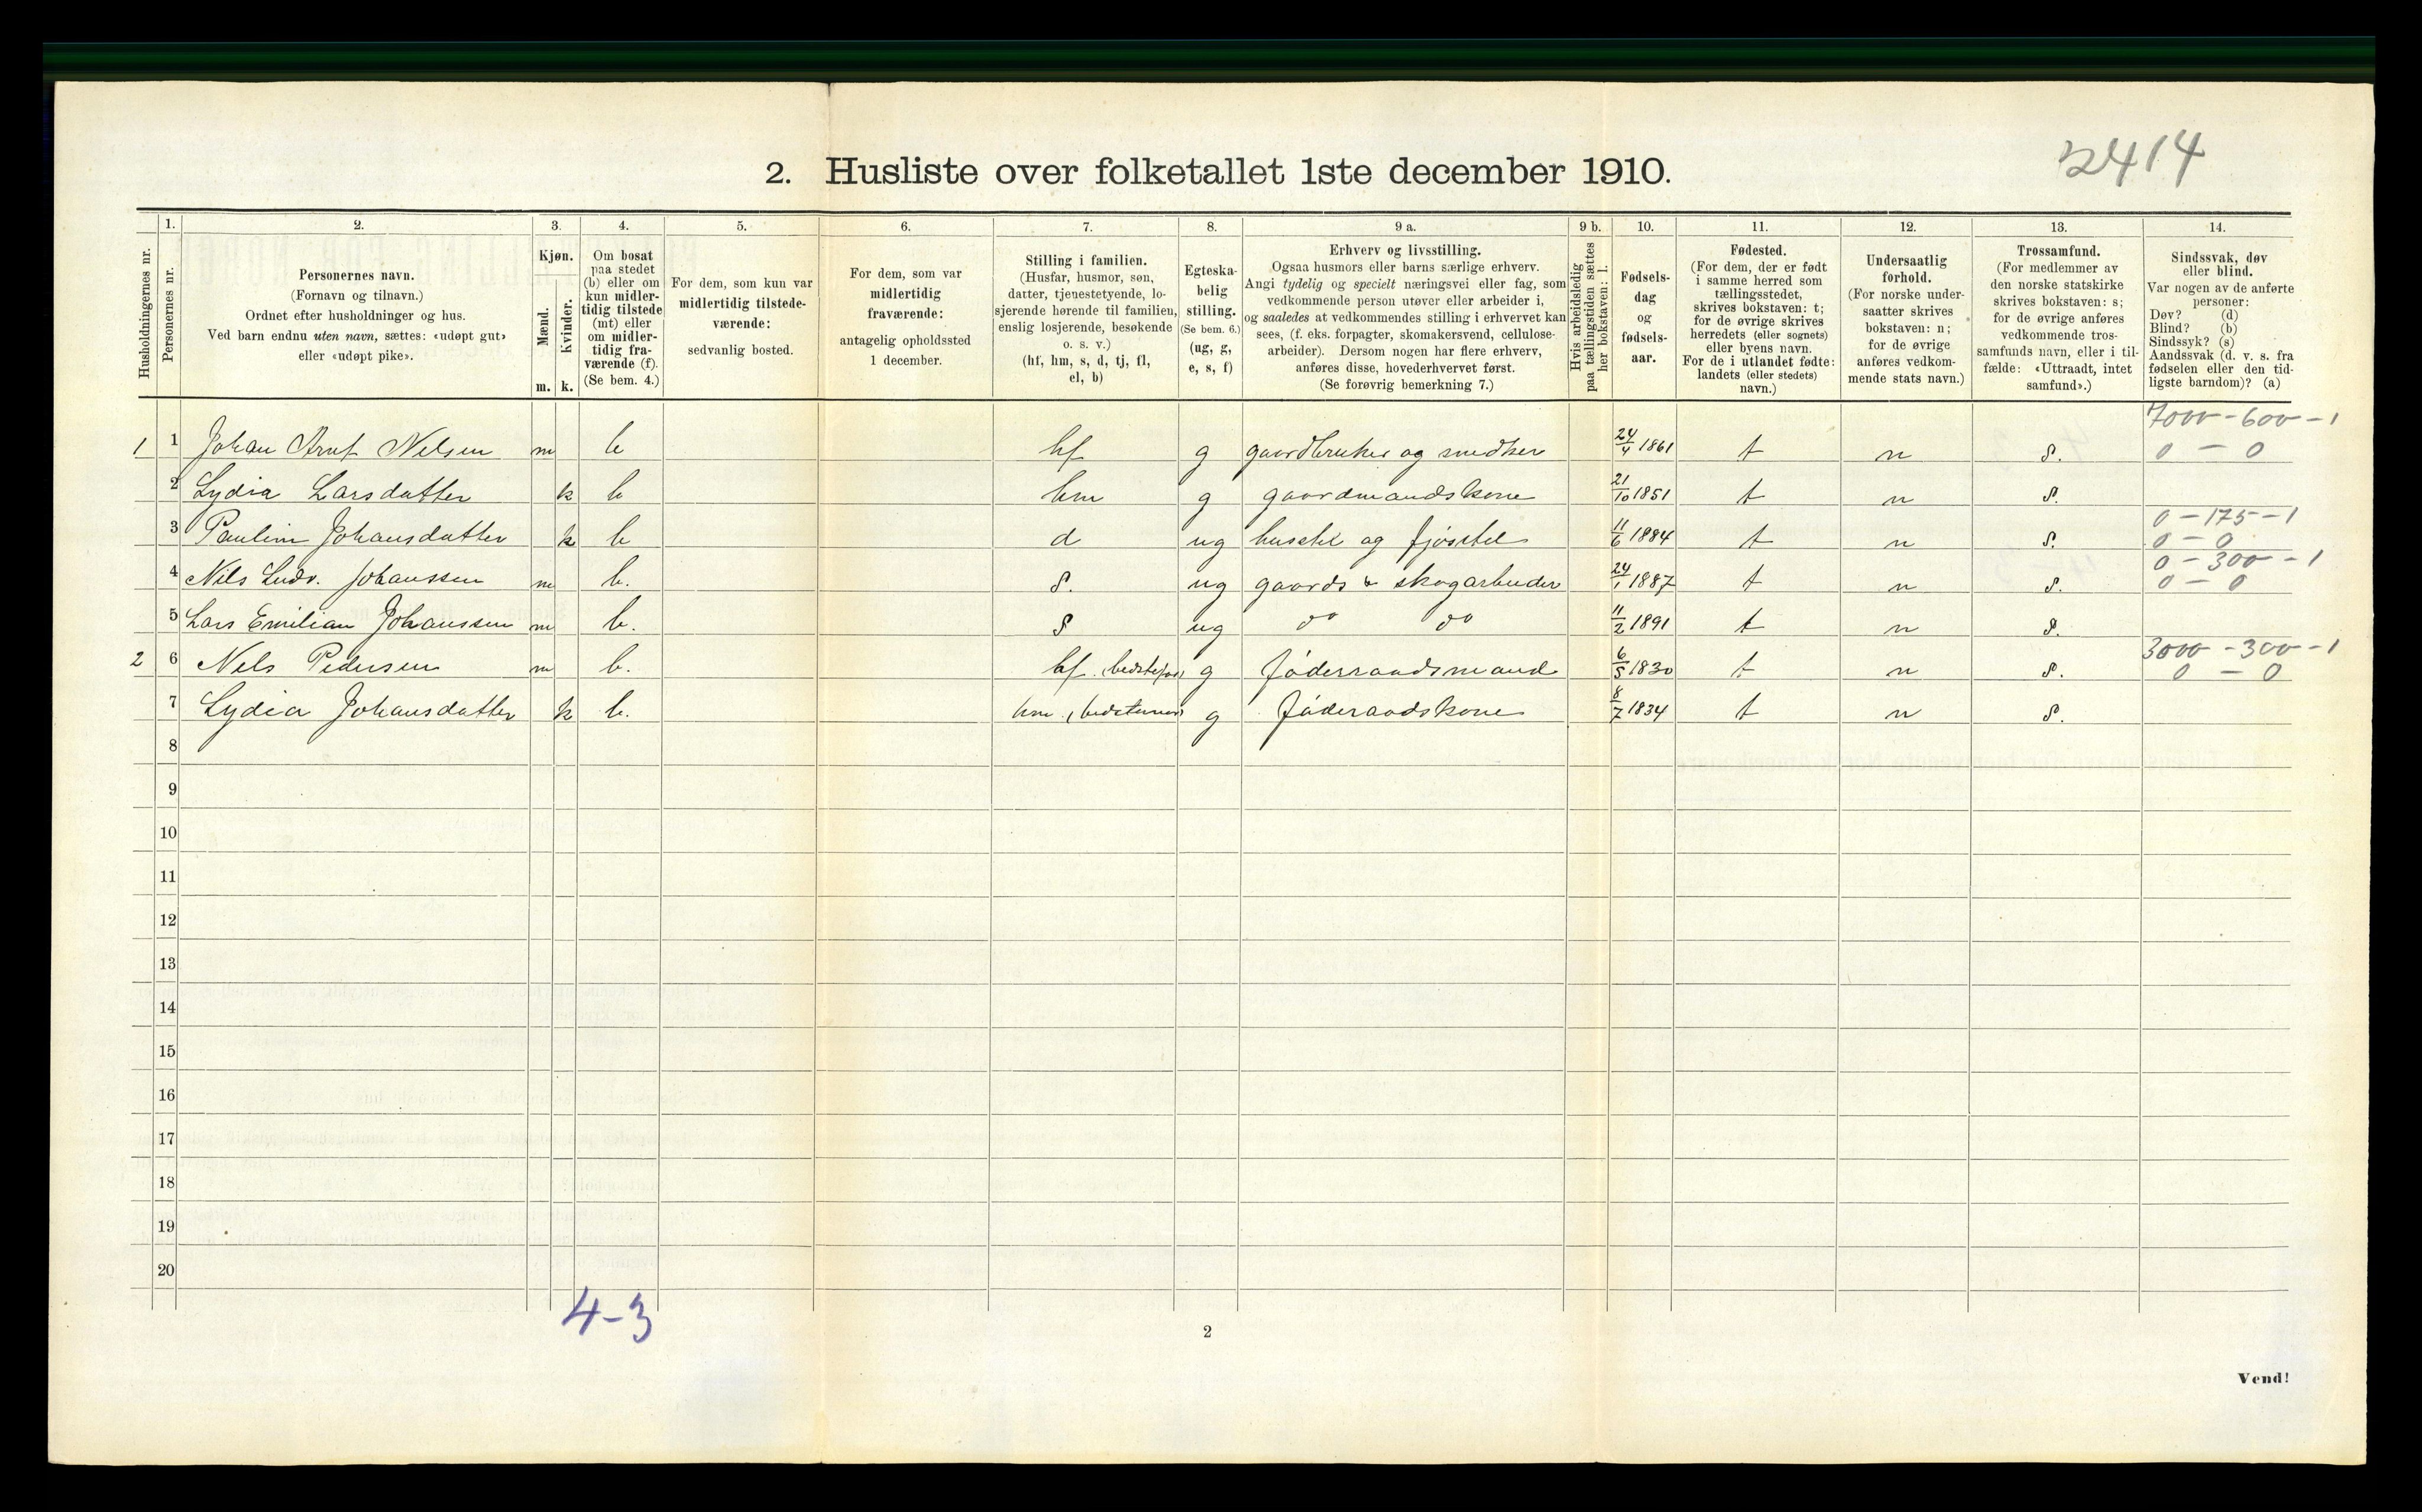 2414
2. Husliste over folketallet 1ste december 1910.
Husholdningernes nr.
1.
Personernes nr.
2.
Personernes navn.
(Fornavn og tilnavn.)
Ordnet efter husholdninger og hus.
Ved barn endnu uten navn, sættes: «udøpt gut»
eller «udøpt pike».
3.
Kjøn.
Mænd.
Kvinder.
m. k.
4.
Om bosat
paa stedet
(b) eller om
kun midler-
tidig tilstede
(mt) eller
om midler-
tidig fra-
værende (f).
(Se bem. 4.)
5.
For dem, som kun var
midlertidig tilstede-
værende:
sedvanlig bosted.
6.
For dem, som var
midlertidig
fraværende:
antagelig opholdssted
1 december.
7.
Stilling i familien.
(Husfar, husmor, søn,
datter, tjenestetyende, lo-
sjerende hørende til familien,
enslig losjerende, besøkende
o. s. v.)
(hf, hm, s, d, tj, fl,
el, b)
8.
Egteska-
belig
stilling.
(Se bem. 6.)
(ug, g,
e, s, f)
9 a.
Erhverv og livsstilling.
Ogsaa husmors eller barns særlige erhverv.
Angi tydelig og specielt næringsvei eller fag, som
vedkommende person utøver eller arbeider i,
og saaledes at vedkommendes stilling i erhvervet kan
sees, (f. eks. forpagter, skomakersvend, cellulose-
arbeider). Dersom nogen har flere erhverv,
anføres disse, hovederhvervet først.
(Se forøvrig bemerkning 7.)
9 b.
Hvis arbeidsledig
paa tællingstiden sættes
her bokstaven: l.
10.
Fødsels-
dag
og
fødsels-
aar.
11.
Fødested.
(For dem, der er født
i samme herred som
tællingsstedet,
skrives bokstaven: t;
for de øvrige skrives
herredets (eller sognets)
eller byens navn.
For de i utlandet fødte:
landets (eller stedets)
navn.)
12.
Undersaatlig
forhold.
(For norske under-
saatter skrives
bokstaven: n;
for de øvrige
anføres vedkom-
mende stats navn.)
13.
Trossamfund.
(For medlemmer av
den norske statskirke
skrives bokstaven: s;
for de øvrige anføres
vedkommende tros-
samfunds navn, eller i til-
fælde: «Uttraadt, intet
samfund».)
14.
Sindssvak, døv
eller blind.
Var nogen av de anførte
personer:
Døv? (d)
Blind? (b)
Sindssyk? (s)
Aandssvak (d. v. s. fra
fødselen eller den tid-
ligste barndom)? (a)
7000-600-1
1 1 Johan Arnt Nelsen m b hf g gaardbruker og snedker 24/4 1861 t n s. 0 - 0
2 Lydia Larsdatter k b hm g gaardmandskone 21/10 1851 t n s.
0-175-1
3 Paulina Johansdatter k b d ug husstel og fjøsstel 11/6 1884 t n s. 0-0
0-300-1
4 Nils Ludv. Johanssen m b. s. ug gaards & skogarbeider 24/1 1887 t n s. 0-0
5 Lars Emilian Johanssen m b. s ug do do 11/2 1891 t n s.
3000-300-1
2 6 Nels Pedersen m b. hf. (bedstefar) g føderraadsmand 6/5 1830 t n s. 0 - 0
7 Lydia Johansdatter k b. hm. (bedstemor) g føderaadskone 8/7 1834 t n s.
8
9
10
11
12
13
14
15
16
17
18
19
20
4-3
2
Vend!